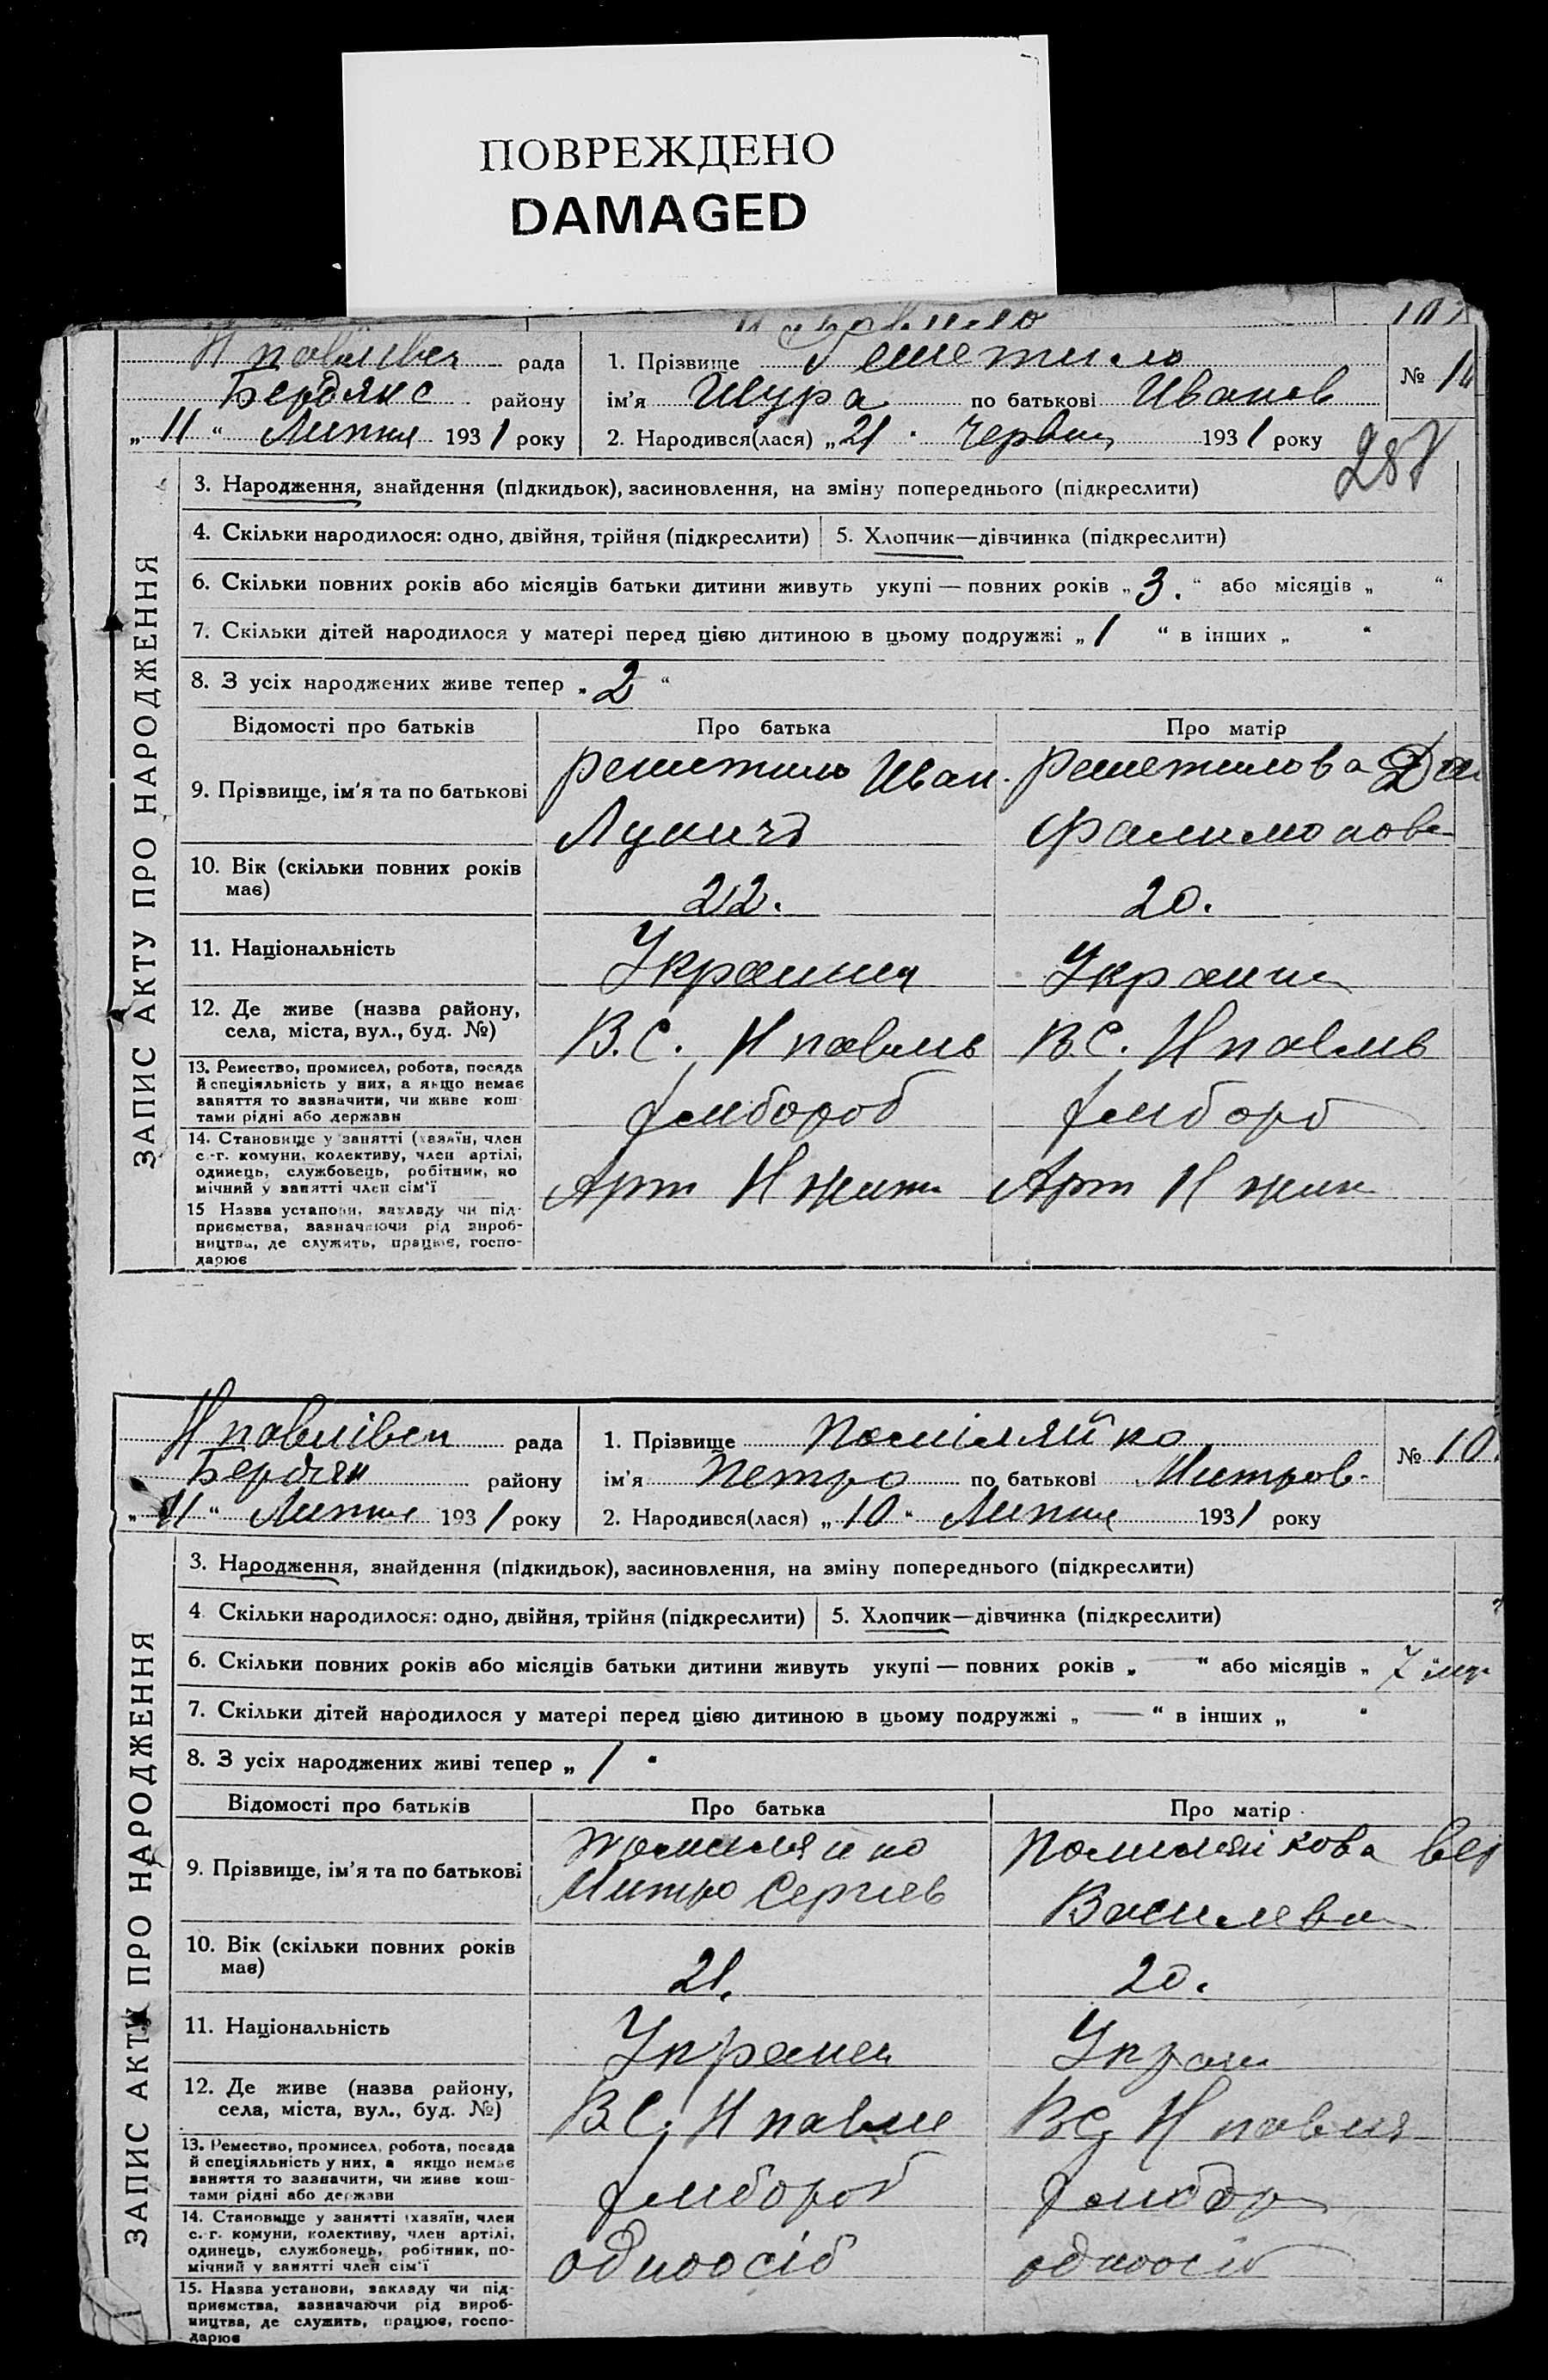 ПОВРЕЖДЕНО
DAMAGED
Нпавлівсч рада
Бердянс району
„11“ Липня 1931 року
1. Прізвище Решетило
ім'я Шура по батькові Иванов
2. Народився(лася) „21“ Червня 1931 року
№
287
ЗАПИС АКТУ ПРО НАРОДЖЕННЯ
3. Народження, знайдення (підкидьок), засиновлення, на зміну попереднього (підкреслити)
4. Скільки народилося: одно, двійня, трійня (підкреслити) 5. Хлопчик—дівчинка (підкреслити)
6. Скільки повних років або місяців батьки дитини живуть укупі — повних років „3.“ або місяців „ “
7. Скільки дітей народилося у матері перед цією дитиною в цьому подружжі „1 “ в інших „ “
8. З усіх народжених живе тепер „2“
Відомості про батьків Про батька Про матір
9. Прізвище, ім'я та по батькові
Решетило Иван. Решетилова
Лукичъ Фалимонов
10. Вік (скільки повних років має) 22. 20.
11. Національність Украинц Украин
12. Де живе (назва району, села, міста, вул., буд. №)
В.С. Нпавлів В.С. Нпавлів
13. Ремество, промисел, робота, посада
й спеціяльність у них, а якщо немає
заняття то зазначити, чи живе кош-
тами рідні або держави
хлибороб хлиборб
14. Становище у занятті (хазяїн, член
с.-г. комуни, колективу, член артілі,
одинець, службовець, робітник, по
мічний у занятті член сім'ї
Арт Нжитт Арт Нжит
15 Назва установи, закладу чи під-
приємства, зазначаючи рід вироб-
ництва, де служить, працює, госпо-
дарює
Нпавлівсч рада
Бердян району
„11“ Липня 1931 року
1. Прізвище Помиляйко
ім'я Петро по батькові Митров
2. Народився(лася) „10“ Липня 1931 року
№ 10.
ЗАПИС АКТУ ПРО НАРОДЖЕННЯ
3. Народження, знайдення (підкидьок), засиновлення, на зміну попереднього (підкреслити)
4 Скільки народилося: одно, двійня, трійня (підкреслити) 5. Хлопчик—дівчинка (підкреслити)
6. Скільки повних років або місяців батьки дитини живуть укупі — повних років „—“ або місяців „ 7
7. Скільки дітей народилося у матері перед цією дитиною в цьому подружжі „ — “ в інших „ “
8. З усіх народжених живі тепер „ 1 “
Відомості про батьків Про батька Про матір
9. Прізвище, ім'я та по батькові
Помиляйко Помиляйкова Вер
Митро Сергіев Василева
10. Вік (скільки повних років має) 21. 20.
11. Національність Украинец Украи
12. Де живе (назва району, села, міста, вул., буд. №)
В.С. Нпавли В.С. Нпавля
13. Ремество, промисел, робота, посада
й спеціяльність у них, а якщо немає
заняття то зазначити, чи живе кош-
тами рідні або держави
хлибороб хлибор
14. Становище у занятті (хазяїн, член
с.-г. комуни, колективу, член артілі,
одинець, службовець, робітник, по-
мічний у занятті член сім'ї
одноосіб одноосіб
15. Назва установи, закладу чи під-
приємства, зазначаючи рід вироб-
ництва, де служить, працює, госпо-
дарює